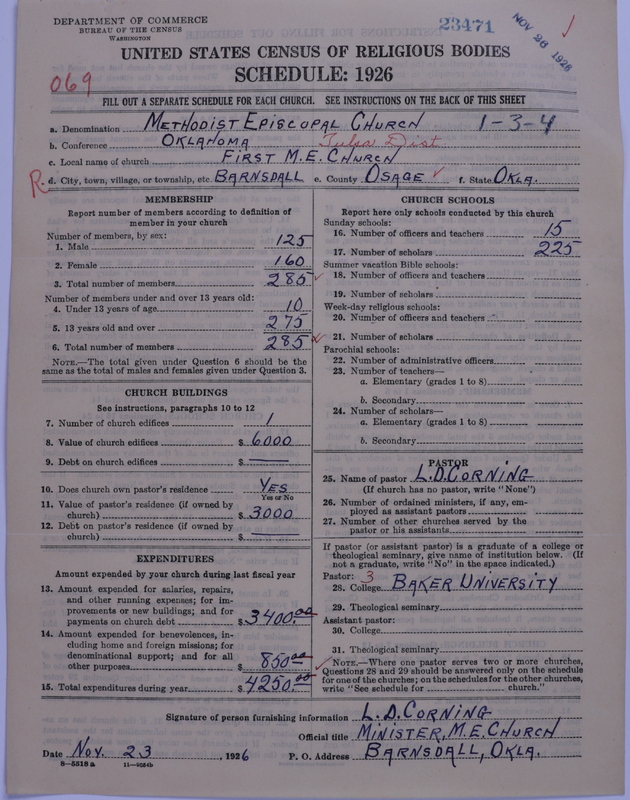 DEPARTMENT OF COMMERCE
BUREAU OF THE CENSUS
WASHINGTON
23471
NOV 26 1926
UNITED STATES CENSUS OF RELIGIOUS BODIES
SCHEDULE: 1926
069
FILL OUT A SEPARATE SCHEDULE FOR EACH CHURCH. SEE INSTRUCTIONS ON THE BACK OF THIS SHEET
a. Denomination METHODIST EPISCOPAL CHURCH 1-3-4
b. Conference OKLAHOMA Tulsa Dist.
c. Local name of church FIRST M.E. CHURCH
R d. City, town, village, or township, etc. BARNSDALL e. County OSAGE f. State OKLA.
MEMBERSHIP
Report number of members according to definition of
member in your church
Number of members, by sex:
1. Male 125
2. Female 160
3. Total number of members 285
Number of members under and over 13 years old:
4. Under 13 years of age 10
5. 13 years old and over 275
6. Total number of members 285
NOTE.—The total given under Question 6 should be the
same as the total of males and females given under Question 3.
CHURCH BUILDINGS
See instructions, paragraphs 10 to 12
7. Number of church edifices 1
8. Value of church edifices $ 6000
9. Debt on church edifices $ —
10. Does church own pastor's residence YES
Yes or No
11. Value of pastor's residence (if owned by
church) $ 3000
12. Debt on pastor's residence (if owned by
church) $ —
EXPENDITURES
Amount expended by your church during last fiscal year
13. Amount expended for salaries, repairs,
and other running expenses; for im-
provements or new buildings; and for
payments on church debt $ 3400.00
14. Amount expended for benevolences, in-
cluding home and foreign missions; for
denominational support; and for all
other purposes $ 850.00
15. Total expenditures during year $ 4250.00
CHURCH SCHOOLS
Report here only schools conducted by this church
Sunday schools:
16. Number of officers and teachers 15
17. Number of scholars 225
Summer vacation Bible schools:
18. Number of officers and teachers
19. Number of scholars
Week-day religious schools:
20. Number of officers and teachers
21. Number of scholars
Parochial schools:
22. Number of administrative officers
23. Number of teachers—
a. Elementary (grades 1 to 8)
b. Secondary
24. Number of scholars—
a. Elementary (grades 1 to 8)
b. Secondary
PASTOR
25. Name of pastor L.D. CORNING
(If church has no pastor, write "None")
26. Number of ordained ministers, if any, em-
ployed as assistant pastors
27. Number of other churches served by the
pastor or his assistants
If pastor (or assistant pastor) is a graduate of a college or
theological seminary, give name of institution below. (If
not a graduate, write "No" in the space indicated.)
Pastor: 3
28. College BAKER UNIVERSITY
29. Theological seminary
Assistant pastor:
30. College
31. Theological seminary
NOTE.—Where one pastor serves two or more churches,
Questions 28 and 29 should be answered only on the schedule
for one of the churches; on the schedules for the other churches,
write "See schedule for church."
Signature of person furnishing information L.D. CORNING
Official title MINISTER, M.E. CHURCH
Date NOV. 23, 1926 P. O. Address BARNSDALL, OKLA.
8—5518 a 11—9054b